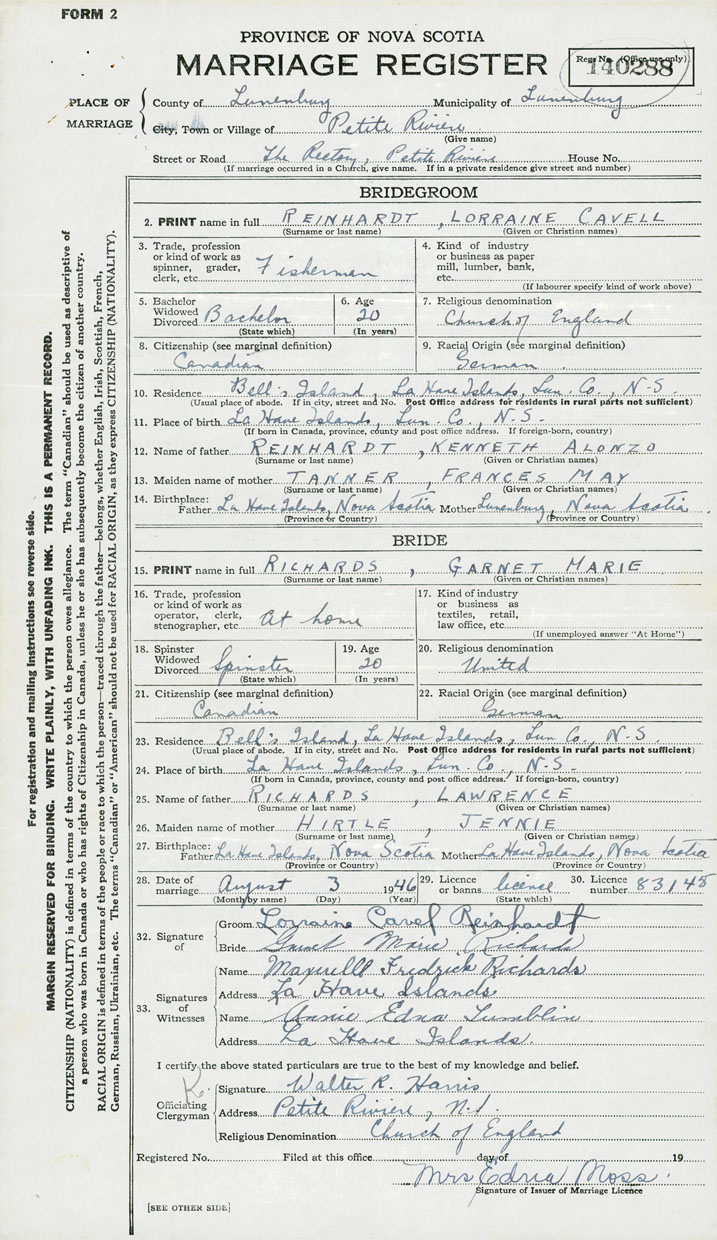 FORM 2
PROVINCE OF NOVA SCOTIA
MARRIAGE REGISTER
Reg. No. (Office use only)
140288
PLACE OF MARRIAGE
County of Lunenburg Municipality of Lunenburg
City, Town or Village of Petite Riviere
(Give name)
Street or Road The Rectory, Petite Riviere House No.
(If marriage occurred in a Church, give name. If in a private residence give street and number)
BRIDEGROOM
2. PRINT name in full REINHARDT , LORRAINE CAVELL
(Surname or last name) (Given or Christian names)
3. Trade, profession or kind of work as spinner, grader, clerk, etc. Fisherman
4. Kind of industry or business as paper mill, lumber, bank, etc.
(If labourer specify kind of work above)
5. Bachelor Widowed Divorced Bachelor (State which)
6. Age 20 (In years)
7. Religious denomination Church of England
8. Citizenship (see marginal definition) Canadian
9. Racial Origin (see marginal definition) German
10. Residence Bell's Island, La Have Islands, Lun. Co., N.S.
(Usual place of abode. If in city, street and No. Post Office address for residents in rural parts not sufficient)
11. Place of birth La Have Islands, Lun. Co., N.S.
(If born in Canada, province, county and post office address. If foreign-born, country)
12. Name of father REINHARDT , KENNETH ALONZO
(Surname or last name) (Given or Christian names)
13. Maiden name of mother TANNER , FRANCES MAY
(Surname or last name) (Given or Christian names)
14. Birthplace: Father La Have Islands, Nova Scotia Mother Lunenburg, Nova Scotia
(Province or Country) (Province or Country)
BRIDE
15. PRINT name in full RICHARDS , GARNET MARIE
(Surname or last name) (Given or Christian names)
16. Trade, profession or kind of work as operator, clerk, stenographer, etc. At home
17. Kind of industry or business as textiles, retail, law office, etc.
(If unemployed answer "At Home")
18. Spinster Widowed Divorced Spinster (State which)
19. Age 20 (In years)
20. Religious denomination United
21. Citizenship (see marginal definition) Canadian
22. Racial Origin (see marginal definition) German
23. Residence Bell's Island, La Have Islands, Lun Co., N.S.
(Usual place of abode. If in city, street and No. Post Office address for residents in rural parts not sufficient)
24. Place of birth La Have Islands, Lun. Co., N.S.
(If born in Canada, province, county and post office address. If foreign-born, country)
25. Name of father RICHARDS , LAWRENCE
(Surname or last name) (Given or Christian names)
26. Maiden name of mother HIRTLE , JENNIE
(Surname or last name) (Given or Christian names)
27. Birthplace: Father La Have Islands, Nova Scotia Mother La Have Islands, Nova Scotia
(Province or Country) (Province or Country)
28. Date of marriage August 3 1946 29. Licence or banns license 30. Licence number 83148
(Month by name) (Day) (Year) (State which)
32. Signature of
Groom Lorraine Cavel Reinhardt
Bride Garnet Marie Richards
33. Signatures of Witnesses
Name Maxwell Fredrick Richards
Address La Have Islands
Name Annie Edna Tumblin
Address La Have Islands.
I certify the above stated particulars are true to the best of my knowledge and belief.
Officiating Clergyman
Signature Walter R. Harris
Address Petite Riviere, N.S.
Religious Denomination Church of England
Registered No. Filed at this office day of 19
Mrs Edna Moss.
Signature of Issuer of Marriage Licence
[SEE OTHER SIDE]
For registration and mailing instructions see reverse side.
MARGIN RESERVED FOR BINDING. WRITE PLAINLY, WITH UNFADING INK. THIS IS A PERMANENT RECORD.
CITIZENSHIP (NATIONALITY) is defined in terms of the country to which the person owes allegiance. The term "Canadian" should be used as descriptive of
a person who was born in Canada or who has rights of Citizenship in Canada, unless he or she has subsequently become the citizen of another country.
RACIAL ORIGIN is defined in terms of the people or race to which the person—traced through the father—belongs, whether English, Irish, Scottish, French,
German, Russian, Ukrainian, etc. The terms "Canadian" or "American" should not be used for RACIAL ORIGIN, as they express CITIZENSHIP (NATIONALITY).